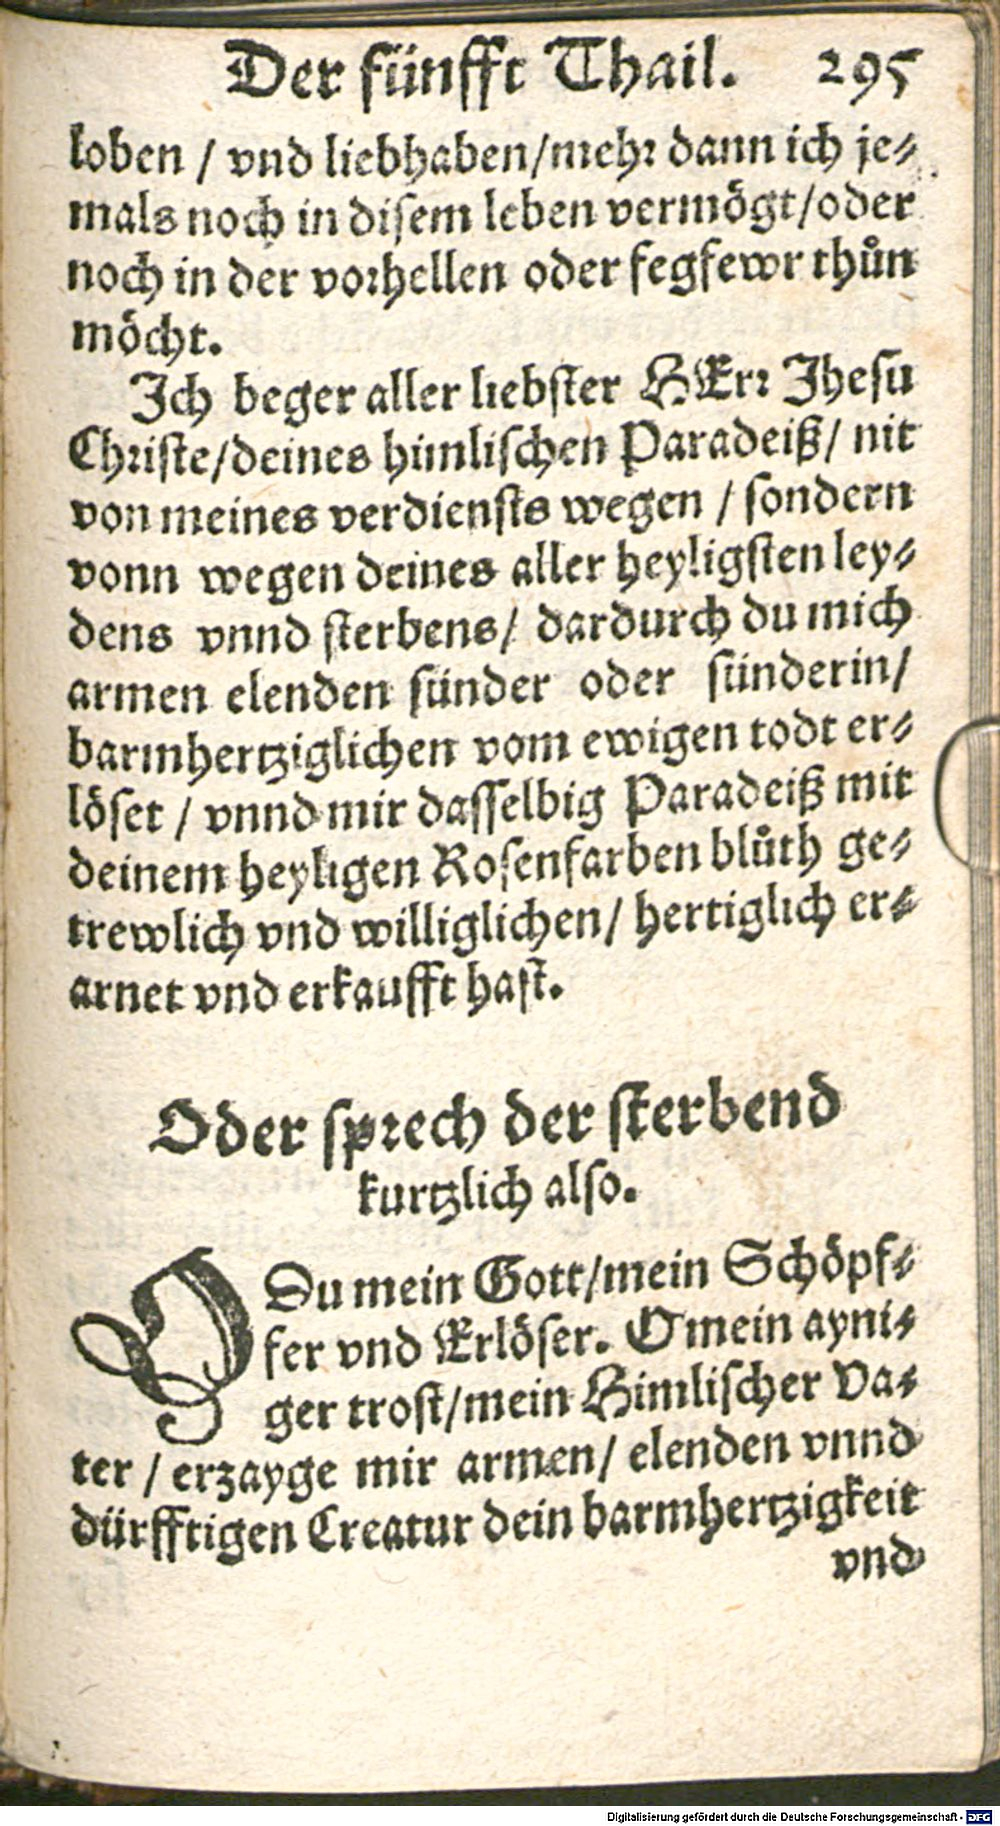 Der fünfft Thail. 295
loben / vnd liebhaben/mehr dann ich je⸗
mals noch in disem leben vermögt/oder
noch in der vorhellen oder fegfewr thůn
möcht.
Ich beger aller liebster HErr Jhesu
Christe/deines himlischen Paradeiß/ nit
von meines verdiensts wegen / sondern
vonn wegen deines aller heyligsten ley⸗
dens vnnd sterbens/ dardurch du mich
armen elenden sünder oder sünderin/
barmhertziglichen vom ewigen todt er⸗
löset / vnnd mir dasselbig Paradeiß mit
deinem heyligen Rosenfarben blůth ge⸗
trewlich vnd williglichen/ hertiglich er⸗
arnet vnd erkaufft hast.
Oder sprech der sterbend
kurtzlich also.
O Du mein Gott/mein Schöpf⸗
fer vnd Erlöser. O mein ayni⸗
ger trost/mein Himlischer Va⸗
ter / erzayge mir armen/ elenden vnnd
dürfftigen Creatur dein barmhertzigkeit
vnd
Digitalisierung gefördert durch die Deutsche Forschungsgemeinschaft - DFG